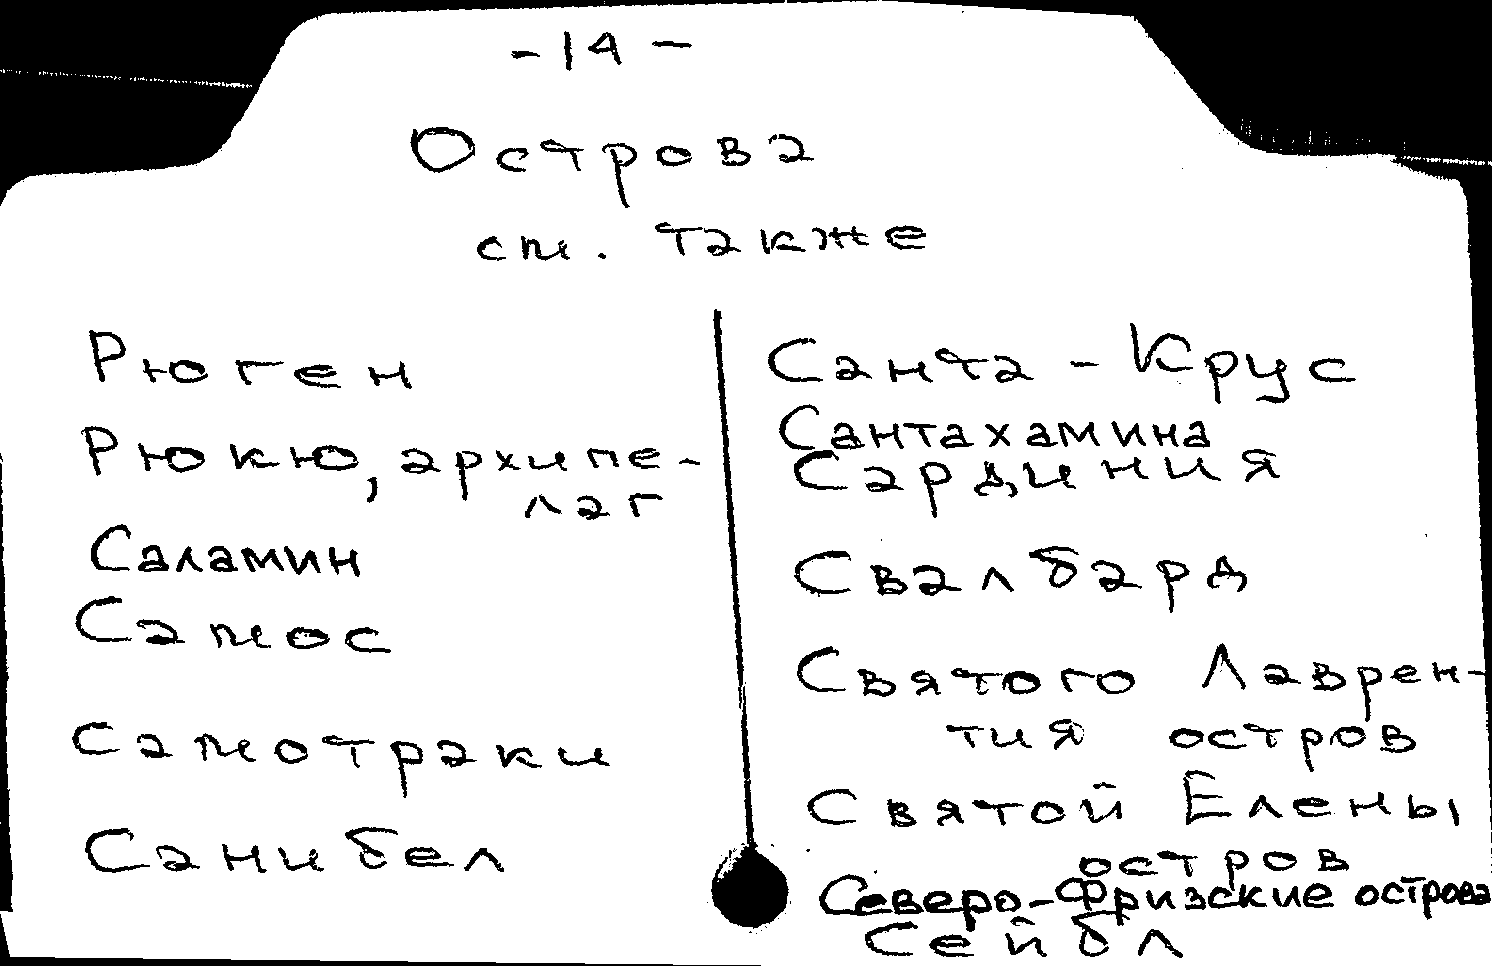 -14-
Острова
см. также
Рюген
Рюкю, архипе-
лаг
Саламин
Самос
Самотраки
Санибел
Санта-Крус
Сантахамина
Сардиния
Свалбард
Святого Лаврен-
тия остров
Святой Елены
остров
Северо-Фризские острова
Сейбл